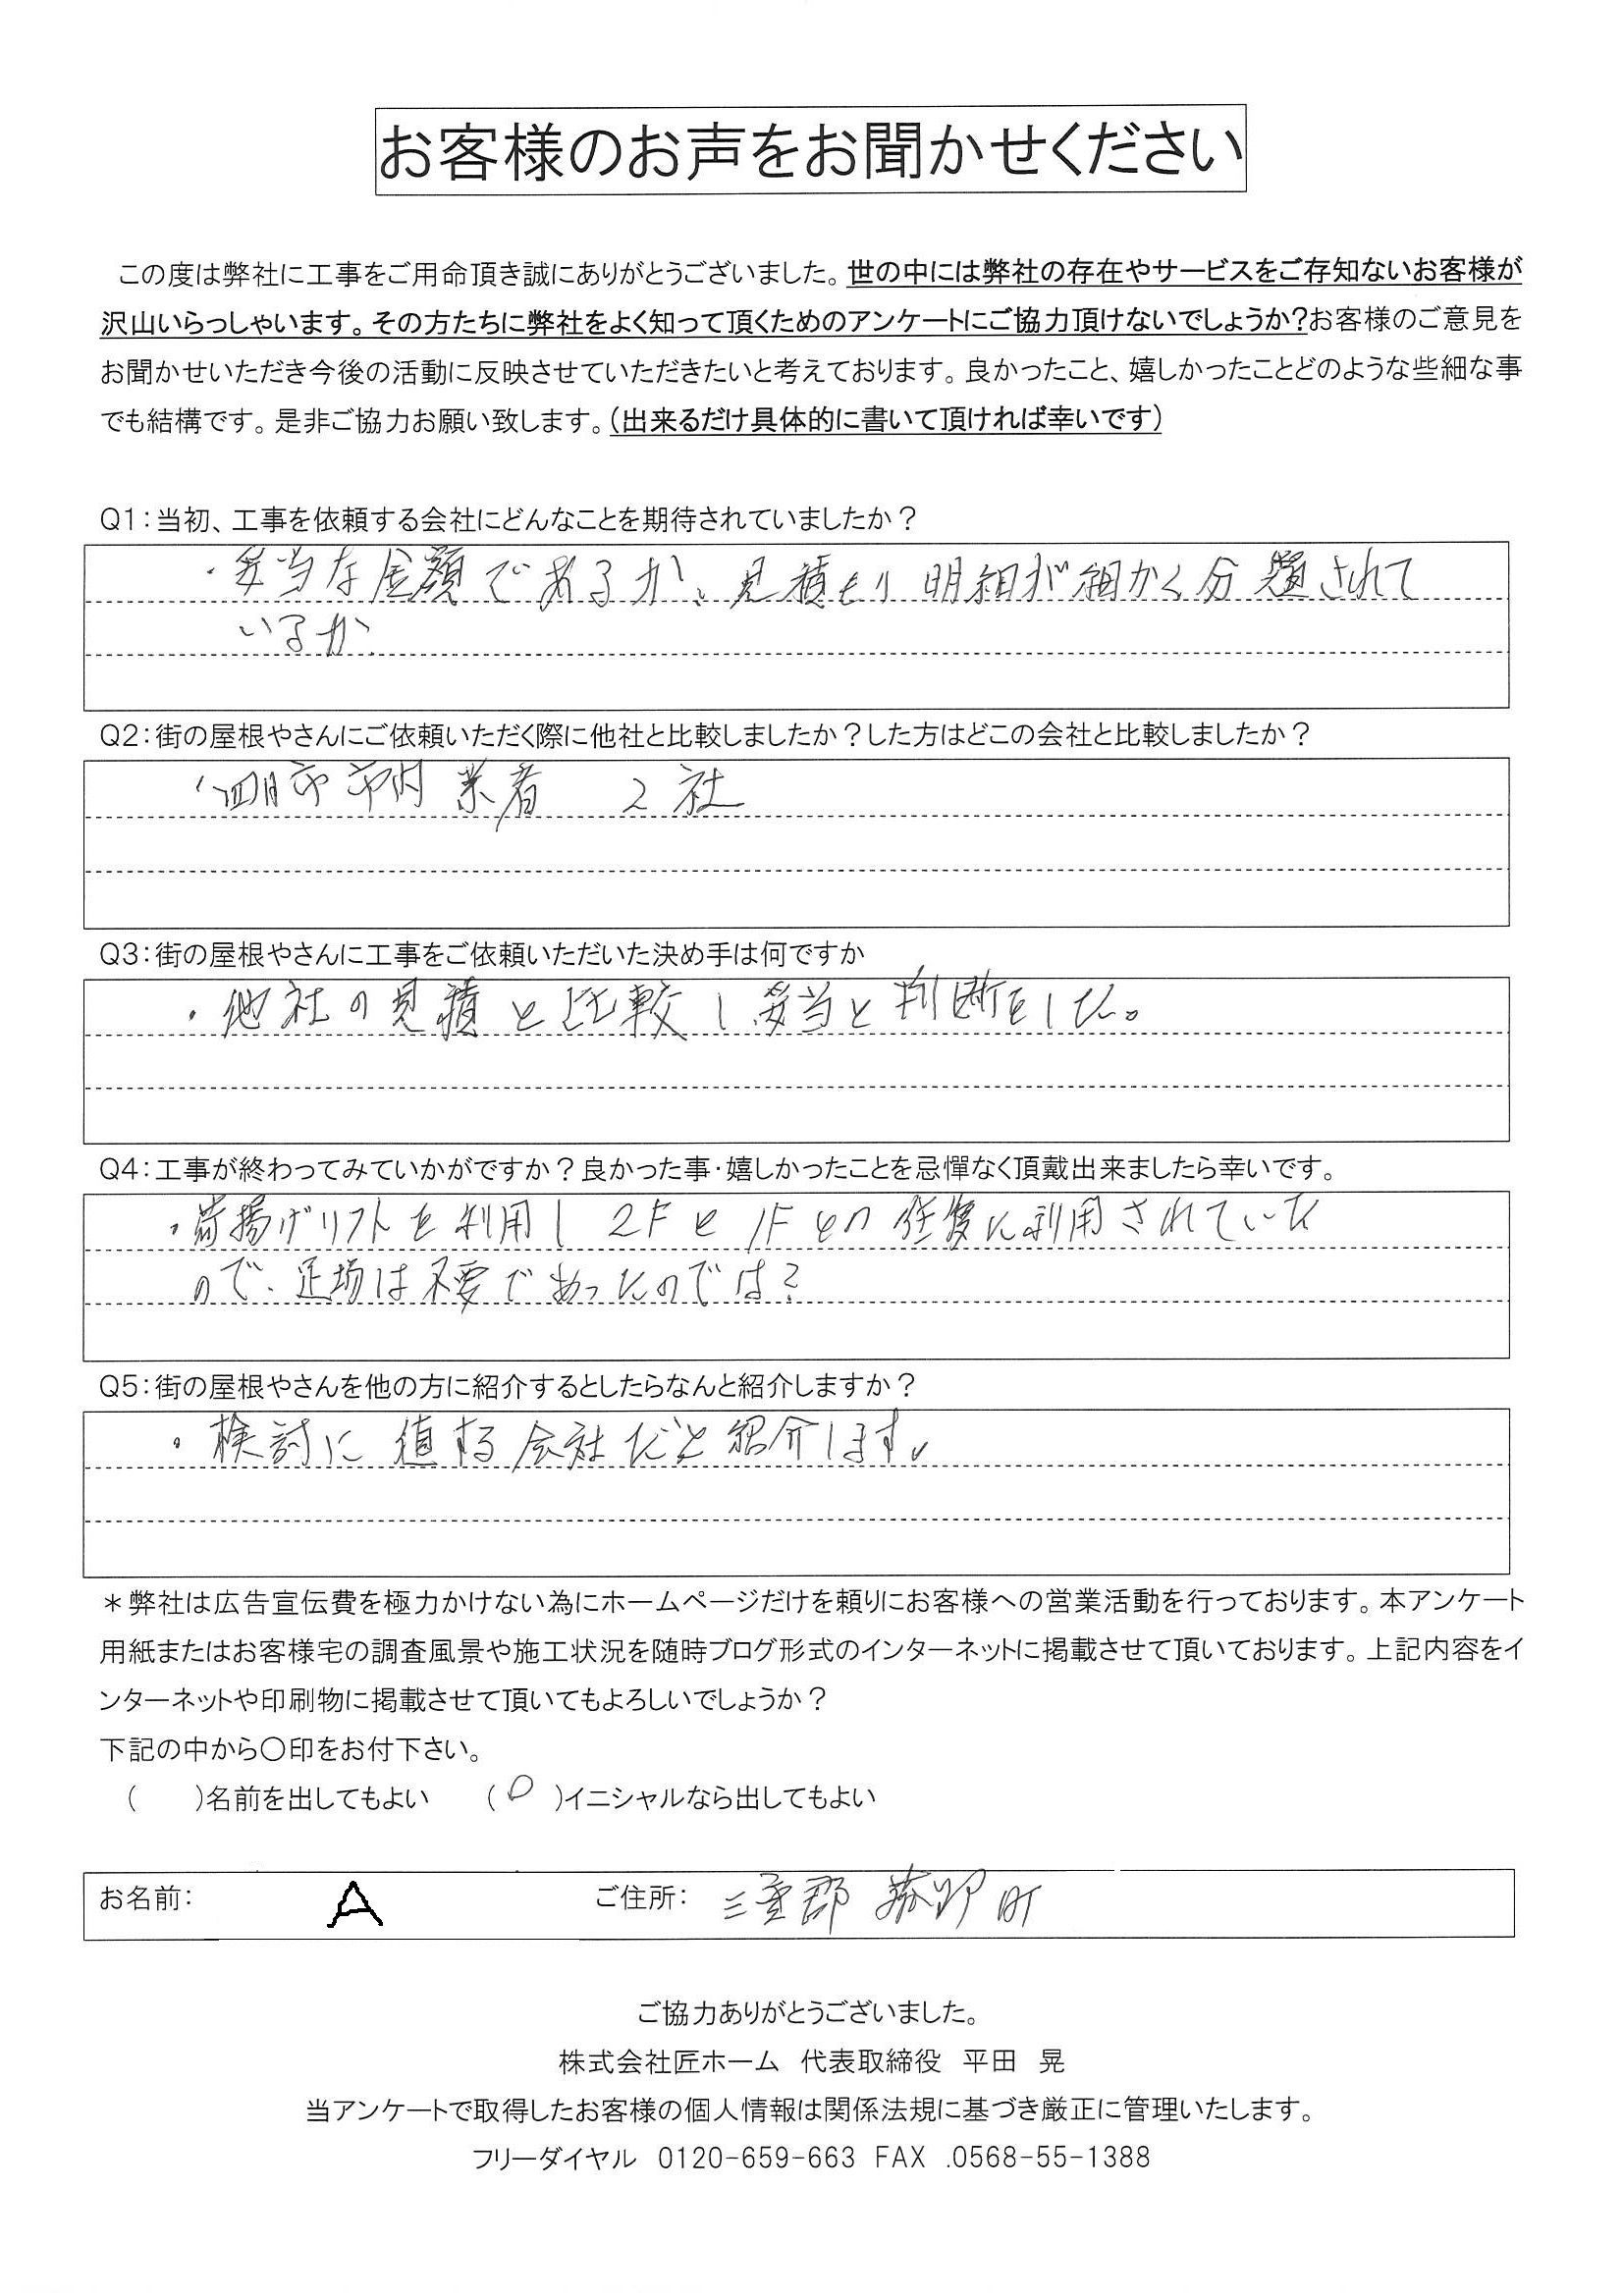 お客様のお声をお聞かせください
この度は弊社に工事をご用命頂き誠にありがとうございました。世の中には弊社の存在やサービスをご存知ないお客様が
沢山いらっしゃいます。その方たちに弊社をよく知って頂くためのアンケートにご協力頂けないでしょうか?お客様のご意見を
お聞かせいただき今後の活動に反映させていただきたいと考えております。良かったこと、嬉しかったことどのような些細な事
でも結構です。是非ご協力お願い致します。(出来るだけ具体的に書いて頂ければ幸いです)
Q1:当初、工事を依頼する会社にどんなことを期待されていましたか?
・妥当な金額であるか、見積もり明細が細かく分類されて
いるか
Q2:街の屋根やさんにご依頼いただく際に他社と比較しましたか?した方はどこの会社と比較しましたか?
四日市市内業者 2社
Q3:街の屋根やさんに工事をご依頼いただいた決め手は何ですか
・他社の見積と比較し妥当と判断をした。
Q4:工事が終わってみていかがですか?良かった事・嬉しかったことを忌憚なく頂戴出来ましたら幸いです。
・荷揚げリフトを利用し2Fと1Fとの往復に利用されていた
ので、足場は不要であったのでは?
Q5:街の屋根やさんを他の方に紹介するとしたらなんと紹介しますか?
・検討に値する会社だと紹介します。
＊弊社は広告宣伝費を極力かけない為にホームページだけを頼りにお客様への営業活動を行っております。本アンケート
用紙またはお客様宅の調査風景や施工状況を随時ブログ形式のインターネットに掲載させて頂いております。上記内容をイ
ンターネットや印刷物に掲載させて頂いてもよろしいでしょうか?
下記の中から〇印をお付下さい。
( )名前を出してもよい (○)イニシャルなら出してもよい
お名前: A ご住所: 三重郡菰野町
ご協力ありがとうございました。
株式会社匠ホーム 代表取締役 平田 晃
当アンケートで取得したお客様の個人情報は関係法規に基づき厳正に管理いたします。
フリーダイヤル 0120-659-663 FAX .0568-55-1388